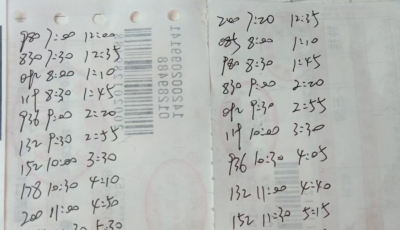 980 7:00 12:00
830 7:30 12:35
8:00 1:10
119 8:30 1:45
936 9:00 2:20
132 9:30 2:55
152 10:00 3:30
178 10:30 4:10
200 11:00 4:50
5:30
200 7:20 12:35
085 8:00 1:10
980 8:30 1:45
830 9:00 2:20
9:30 2:55
119 10:00 3:30
936 10:30 4:05
132 11:00 4:40
152 11:30 5:15